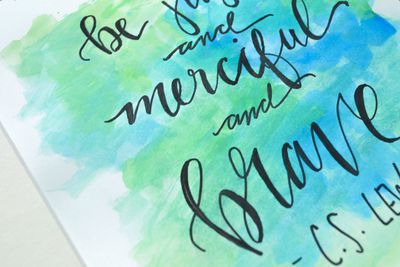 be
and
merciful
and
brave
- C.S. LEW